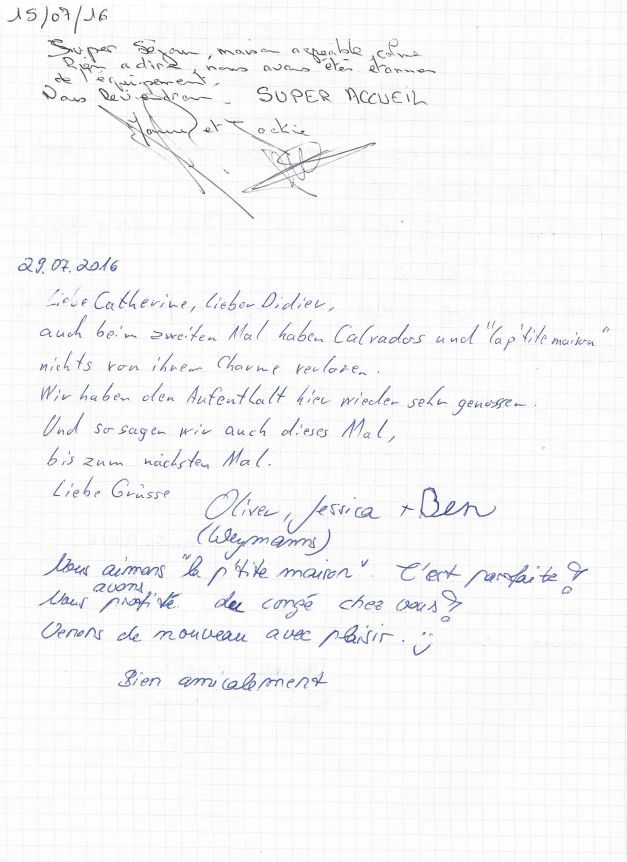 15/07/16
Super Séjour, maison agréable, calme
Rien a dire, nous avons étés étonnés
de l'équipement.
Nous Reviendrons. SUPER ACCUEIL
et Jackie
29.07.2016
Liebe Catherine, Lieber Didier,
auch beim zweiten Mal haben Calvados und "la p'tite maison"
nichts von ihrem Charme verloren.
Wir haben den Aufenthalt hier wieder sehr genossen.
Und so sagen wir auch dieses Mal,
bis zum nächsten Mal.
Liebe Grüsse Oliver, Jessica + Ben
(Weymanns)
Nous aimons "la p'tite maison". C'est parfaite!
avons
Nous profité du congé chez vous!
Venons de nouveau avec plaisir. :)
Bien amicalement